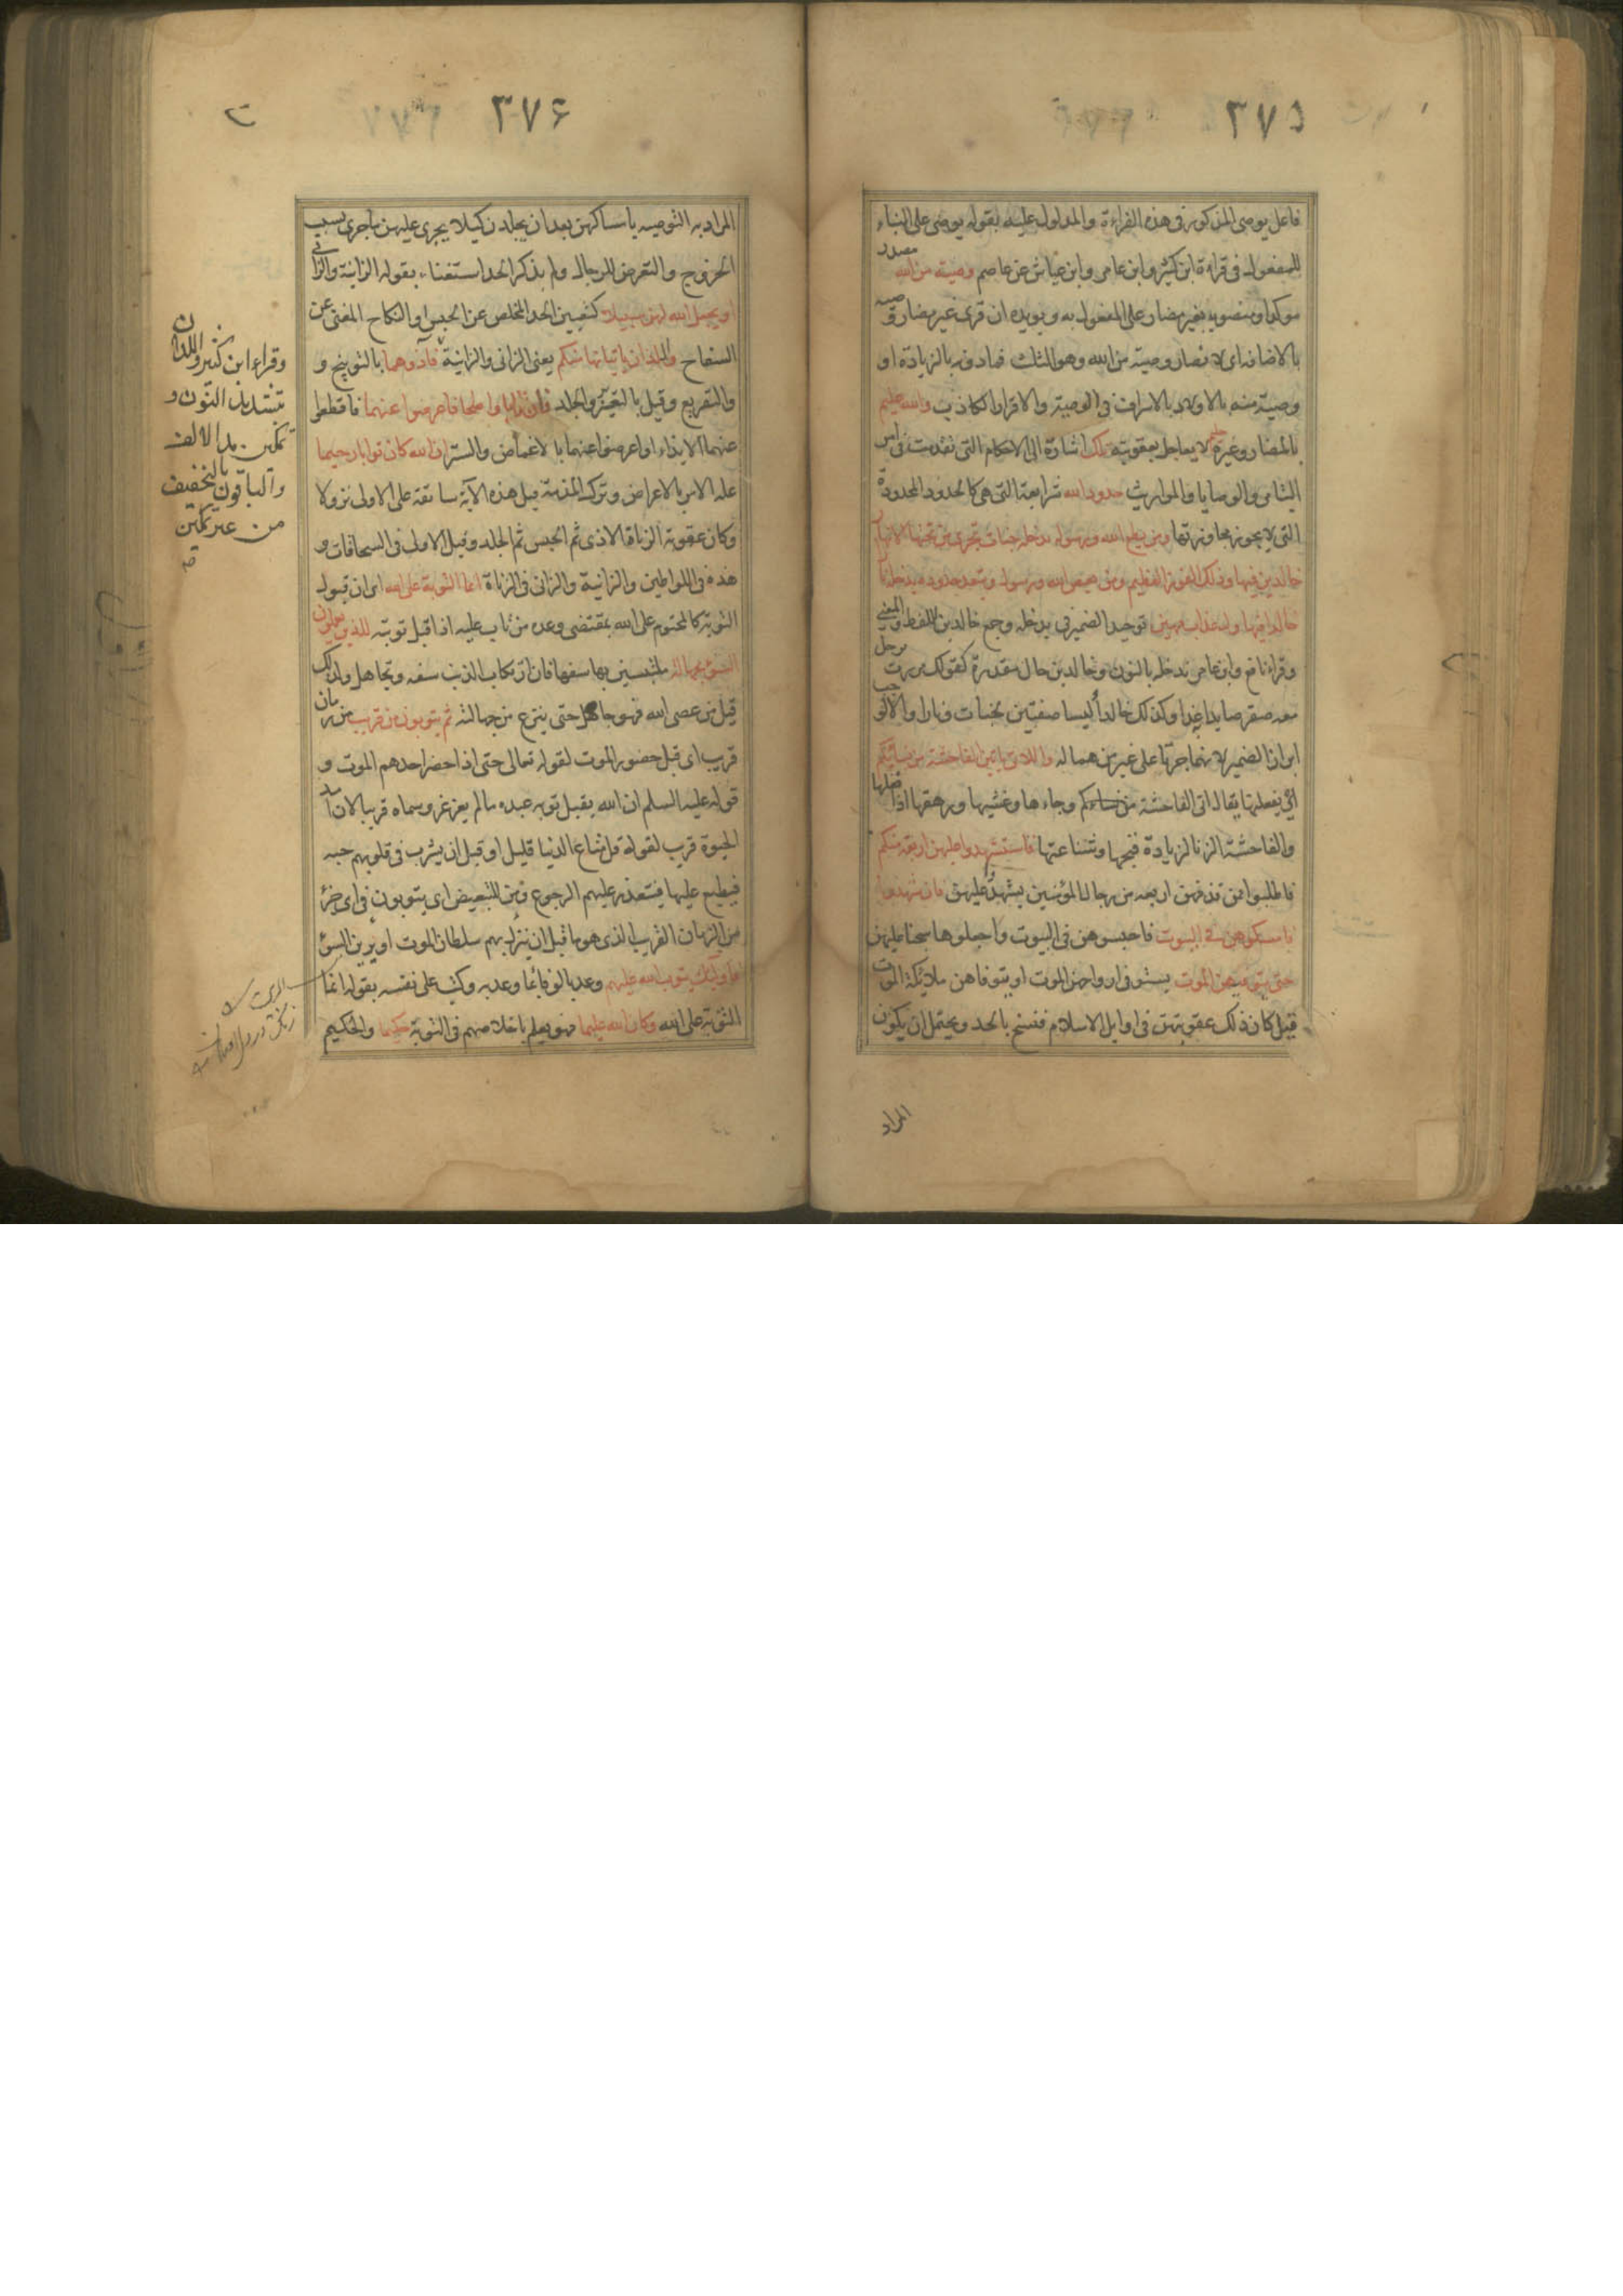 ٣٧٥
فاعل يوصى المذكور فى هذه القراءة والمدلول عليه بقوله يوصى على البناء
للمفعول فى قراءة ابن كثير وابن عامر وابن عياش عن عاصم وصية من الله مصدر
موكد او منصوب بغير مضار على المفعول به ويويده ان قرئ غير مضار وصية
بالاضافه اى لا يضار وصية من الله وهو الثلث فمادونه بالزيادة او
وصية منه بالاولاد بالاسراف فى الوصية والاقرار الكاذب والله عليم
بالمضار وغيره حليم لا يعاجل بعقوبته تلك اشارة الى الاحكام التى تقدمت فى امر
اليتامى والوصايا والمواريث حدود الله شرايعه التى هى كالحدود المحدودة
التى لا يجوز مجاوزتها ومن يطع الله ورسوله يدخله جنات تجرى من تحتها الانهار
خالدين فيها وذلك الفوز العظيم ومن يعص الله ورسوله ويتعد حدوده يدخله نارا
خالدا فيها وله عذاب مهين توحيد الضمير فى يدخله وجمع خالدين للفظ والمعنى
وقراء نافع وابن عامر ندخله بالنون وخالدين حال مقدرة كقولك مررت برجل
معه صقر صايدا به غدا وكذلك خالدا وليسا صفتين لجنات ونارا والا لوجب
ابراز الضمير لانهما جرتا على غير من هما له واللاتى ياتين الفاحشة من نسائكم
اى يفعلنها يقال اتى الفاحشة وجاءها وغشيها ورهقها اذا فعلها
والفاحشة الزنا لزيادة قبحها وشناعتها فاستشهدوا عليهن اربعة منكم
فاطلبوا ممن قذفهن اربعه من رجال المؤمنين يشهد عليهن فان شهدوا
فامسكوهن فى البيوت فاحبسوهن فى البيوت واجعلوها سجنا عليهن
حتى يتوفيهن الموت يستوفى ارواحهن الموت او يتوفاهن ملائكة الموت
قيل كان ذلك عقوبتهن فى اوايل الاسلام فنسخ بالحد ويحتمل ان يكون
المراد
٣٧۶
المراد به التوصيه بامساكهن بعد ان يجلدن كيلا يجرى عليهن ما جرى بسبب
الخروج والتعرض للرجال ولم يذكر الحد استغناء بقوله الزانية والزانى
او يجعل الله لهن سبيلا كتعيين الحد المخلص عن الحبس او النكاح المغنى عن
السفاح واللذان ياتيانها منكم يعنى الزانى والزانية فآذوهما بالتوبيخ و
والتقريع وقيل بالتعيير والجلد فان تابا واصلحا فاعرضوا عنهما فاقطعوا
عنهما الايذاء او اعرضوا عنهما بالاغماض والستر ان الله كان توابا رحيما
علة الامر بالاعراض وترك المذمة قيل هذه الآية سابقة على الاولى نزولا
وكان عقوبة الزناة الاذى ثم الحبس ثم الجلد وقيل الاولى فى السحاقات و
هذه فى اللواطين والزانية والزانى فى الزناة انما التوبة على الله اى ان قبول
التوبة كالمحتوم على الله بمقتضى وعده من تاب عليه اذا قبل توبته للذين يعملون
السوء بجهالة ملتبسين بها سفها فان ارتكاب الذنب سفه وتجاهل ولذلك
قيل من عصى الله فهو جاهل حتى ينزع من جهالته ثم يتوبون من قريب من زمان
قريب اى قبل حضور الموت لقوله تعالى حتى اذا حضر احدهم الموت و
قوله عليه السلم ان الله يقبل توبه عبده ما لم يغرغر وسماه قريبا لان امد
الحيوة قريب لقوله قل متاع الدنيا قليل او قبل ان يشرب فى قلوبهم حبه
فيطبع عليها فيتعذر عليهم الرجوع ومن للتبعيض اى يتوبون فى اى جزء
من الزمان القريب الذى هو ما قبل ان ينزل بهم سلطان الموت او يزين السوء
فاولئك يتوب الله عليهم وعد بالوفاء بما وعد به وكتب على نفسه بقوله انما
التوبة على الله وكان الله عليما فهو يعلم باخلاصهم فى التوبة حكيما والحكيم
وقراء ابن كثير واللذان
بتشديد النون و
تمكين مد الالف
والباقون بالتخفيف
من غير تمكين